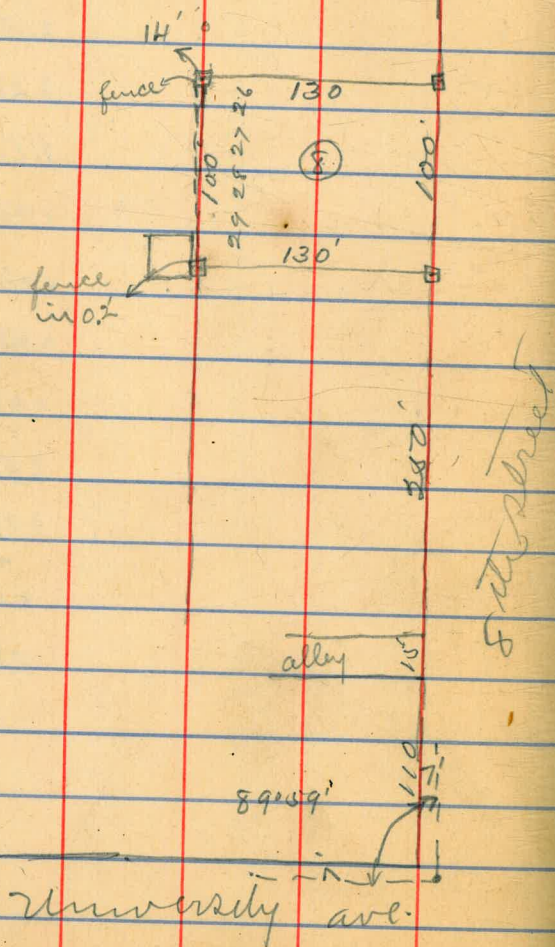 14'
fence
130
100
29 28 27 26
8
100'
130'
fence
in 0.2'
8th street
alley
15'
110
89°59'
University ave.